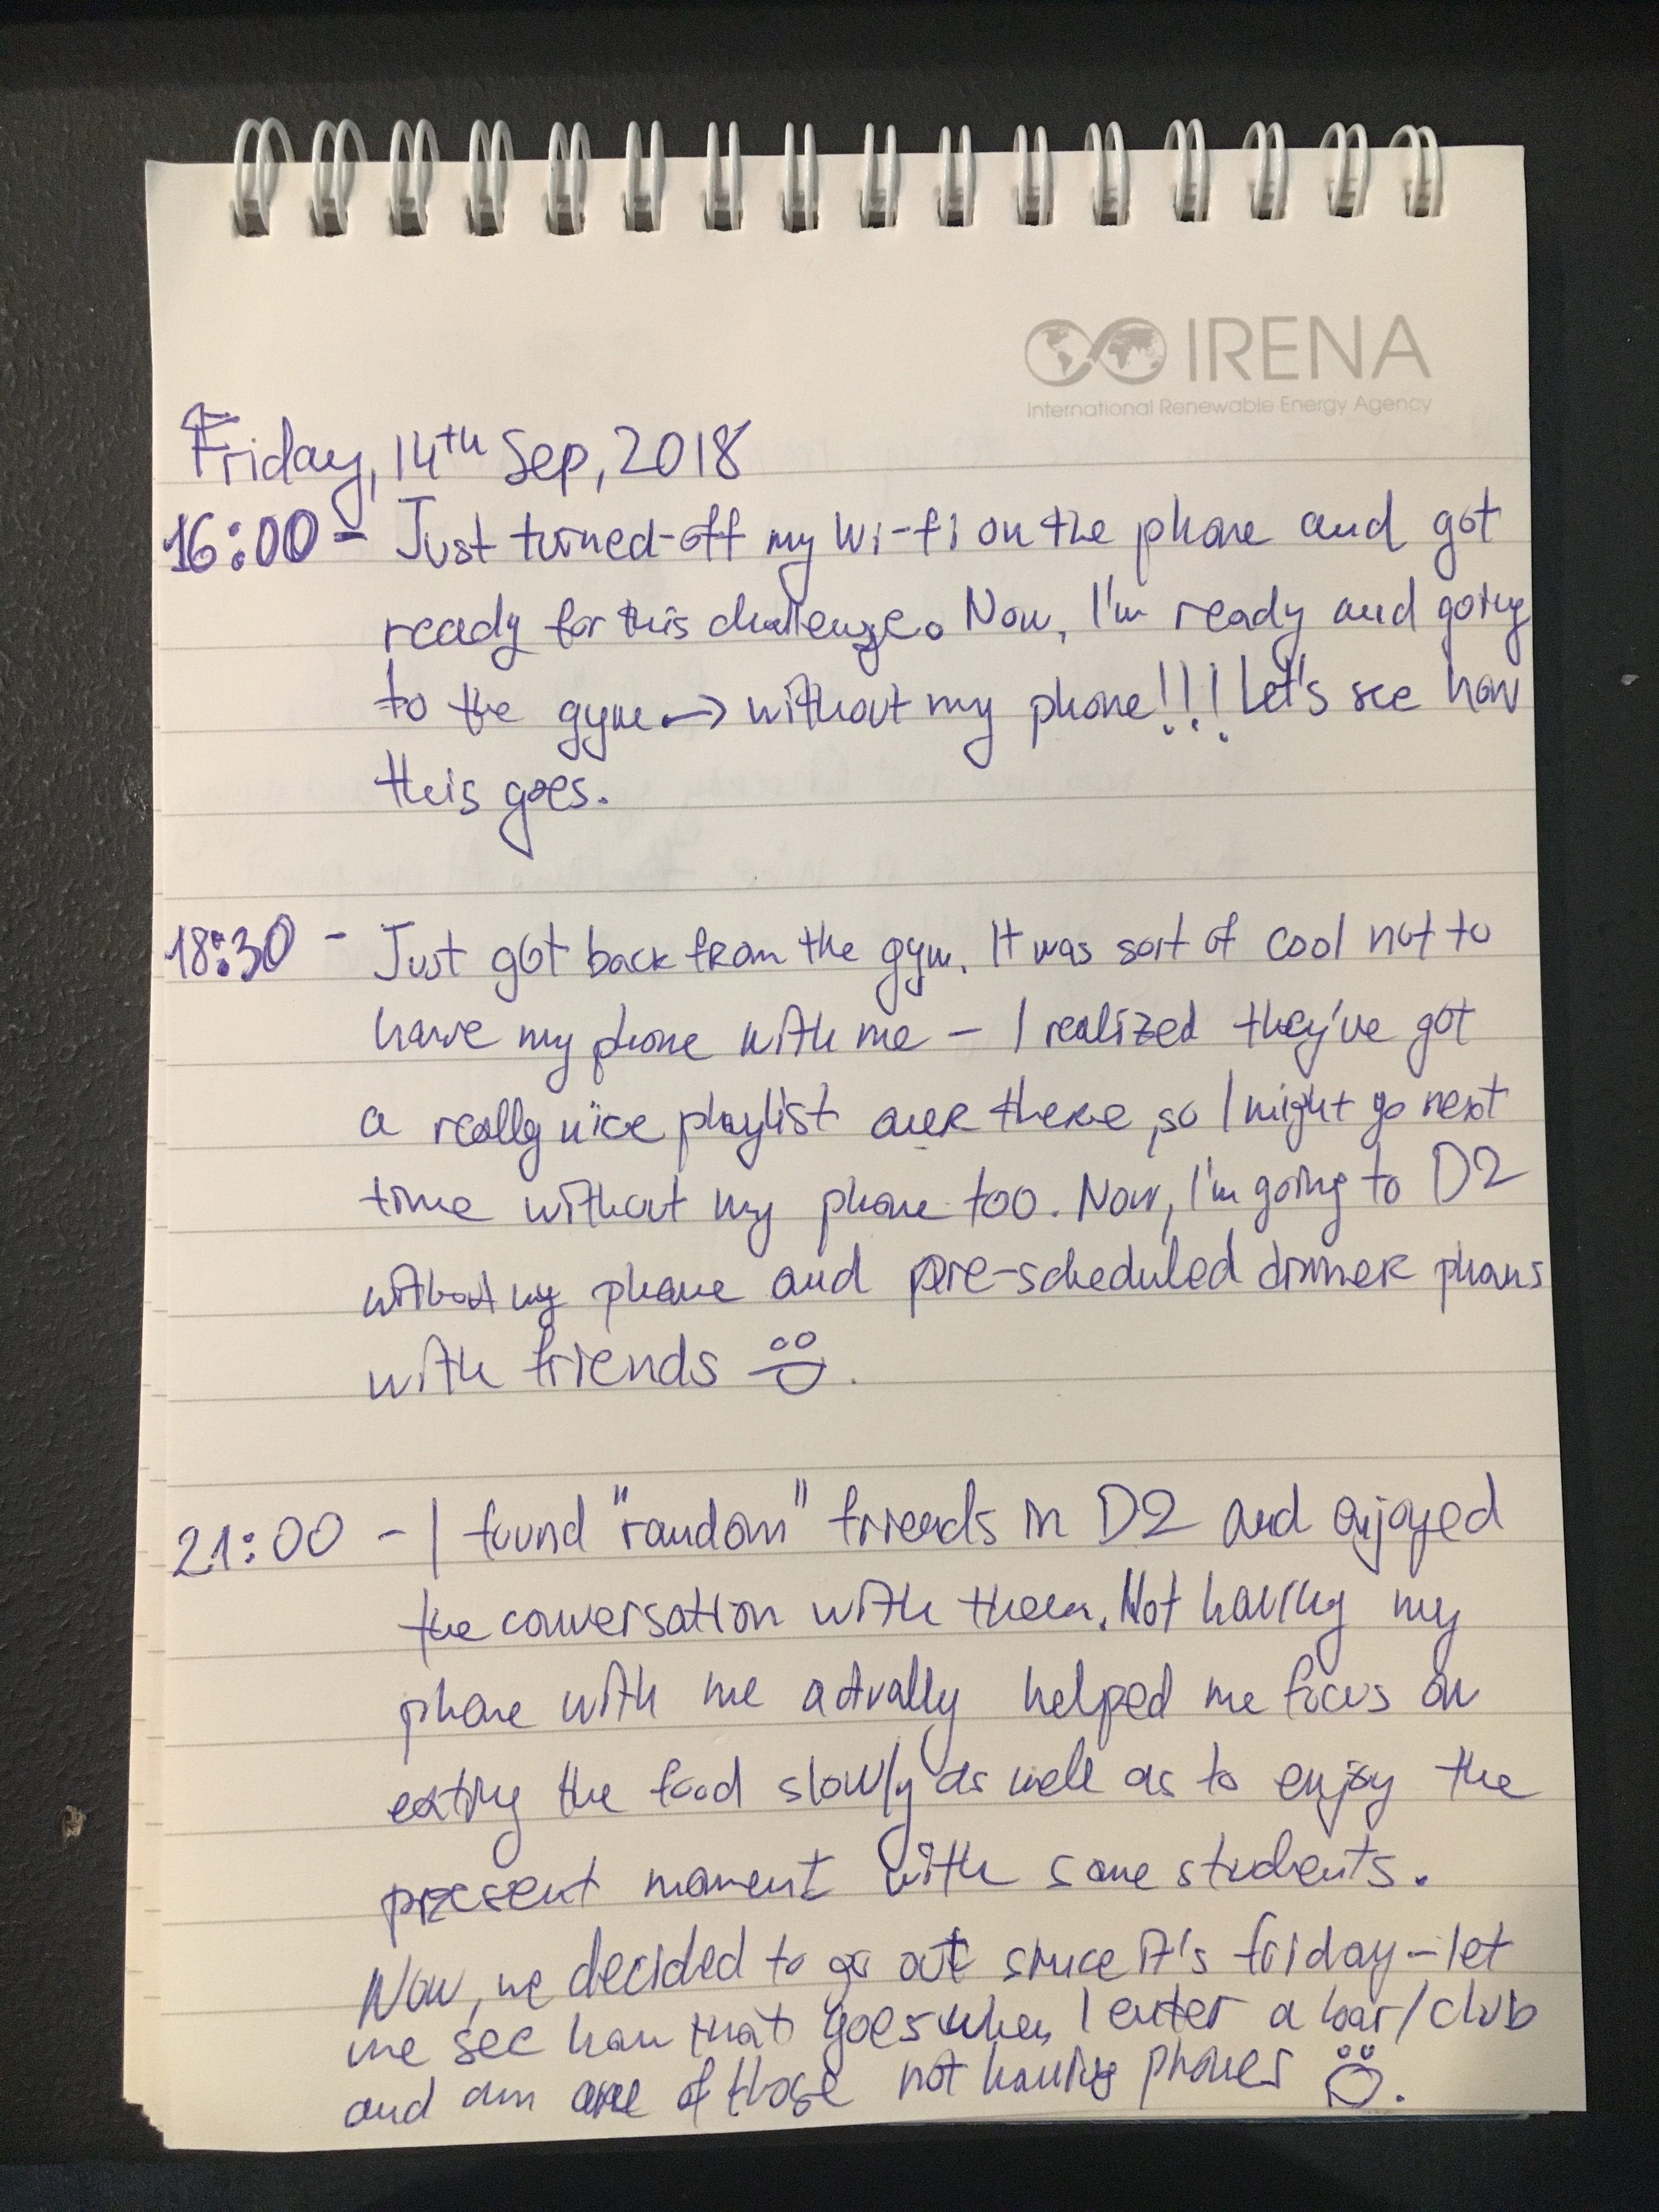 IRENA
International Renewable Energy Agency
Friday, 14th Sep, 2018
16:00 - Just turned-off my Wi-fi on the phone and got
ready for this challenge. Now, I'm ready and going
to the gym → without my phone!!! Let's see how
this goes.
18:30 - Just got back from the gym. It was sort of cool not to
have my phone with me - I realized they've got
a really nice playlist over there, so I might go next
time without my phone too. Now, I'm going to D2
without my phone and pre-scheduled dinner plans
with friends
21:00 - I found "random" friends in D2 and enjoyed
the conversation with them. Not having my
phone with me actually helped me focus on
eating the food slowly as well as to enjoy the
present moment with some students.
Now, we decided to go out since it's friday - let
me see how that goes when I enter a bar/club
and am one of those not having phones